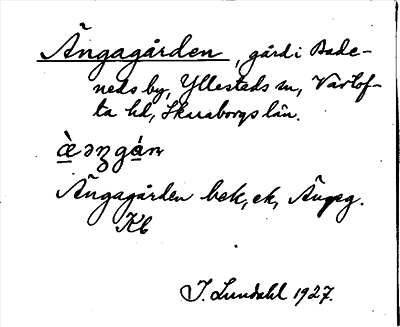 Ängagården, gård i Bade-
neds by, Yllestads sn, Vartof-
ta hd, Skaraborgs län.
Ängagården bek, ek, Ängeg.
Kb
I. Lundahl 1927.